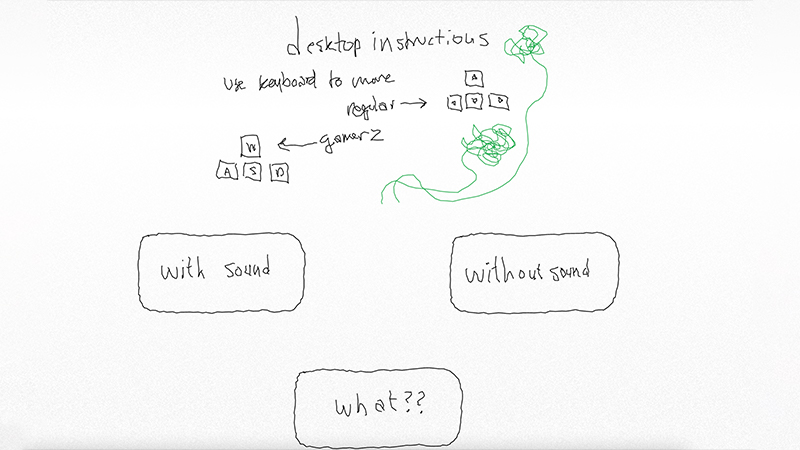 desktop instructions
use keyboard to move
regular
gamerz
W
A S D
with sound
without sound
what??